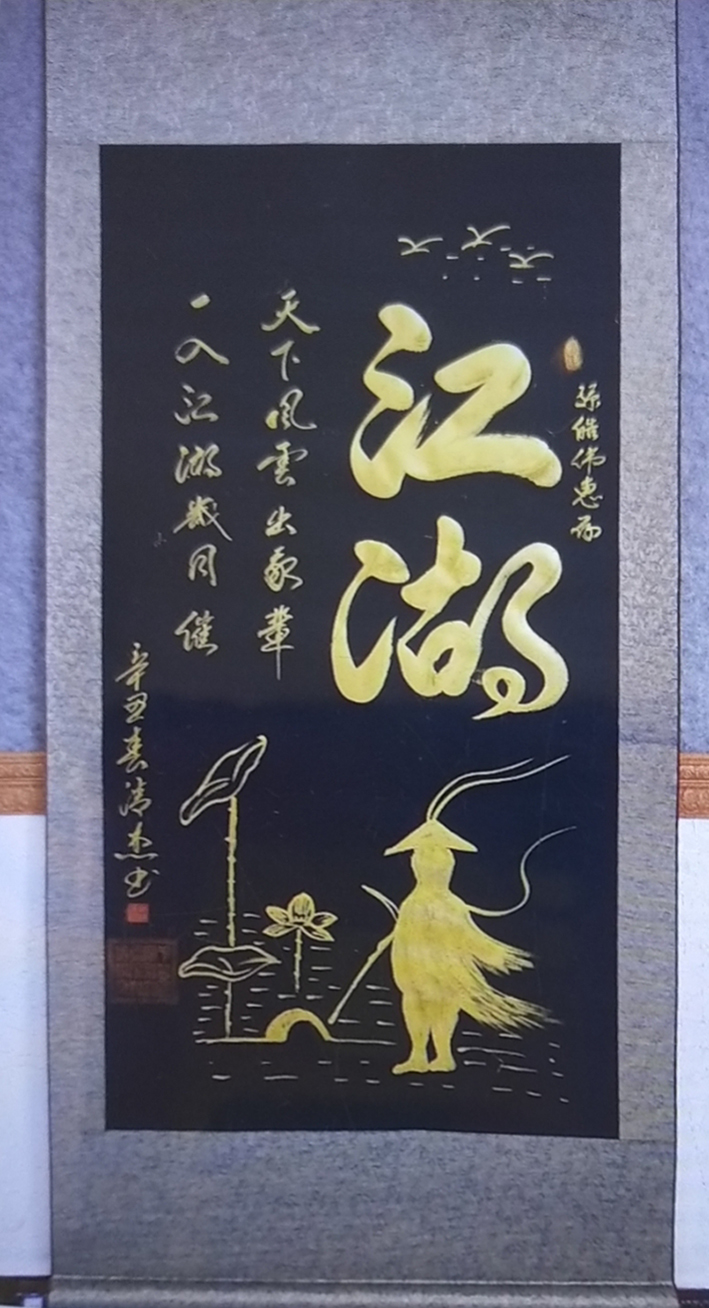 伟惠存
江湖
天下風雲出我輩
一入江湖歲月催
辛丑春清杰书